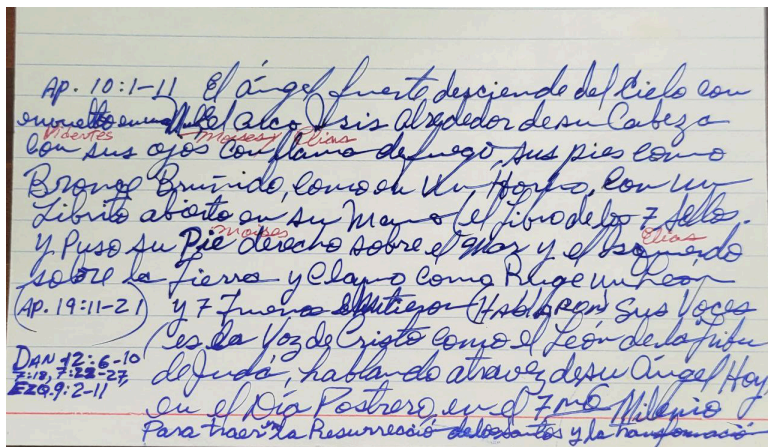 Ap. 10:1-11 El ángel fuerte desciende del Cielo con
envuelto en una Nube el arco Isis alrededor de su Cabeza
Videntes Moises y Elias
con sus ojos con flama de fuego, sus pies como
Bronce Bruñido, como en un Horno, con un
Librito abierto en su Mano (el libro de los 7 Sellos.
moises Elias
Y Puso su Pie derecho sobre el Mar y el Isquierdo
sobre la Tierra y Clamo como Ruge un Leon
(Ap. 19:11-21) y 7 Truenos Hablaron Sus Voces
(es la Voz de Cristo como el León de la Tribu
DAN 12:6-10
7:18, 7:22-27,
EZQ. 9:2-11
de Judá, hablando atravez de su Ángel Hoy
en el Día Postrero, en el 7mo Milenio
Para traer la Resurrecció de los santos y la transformación